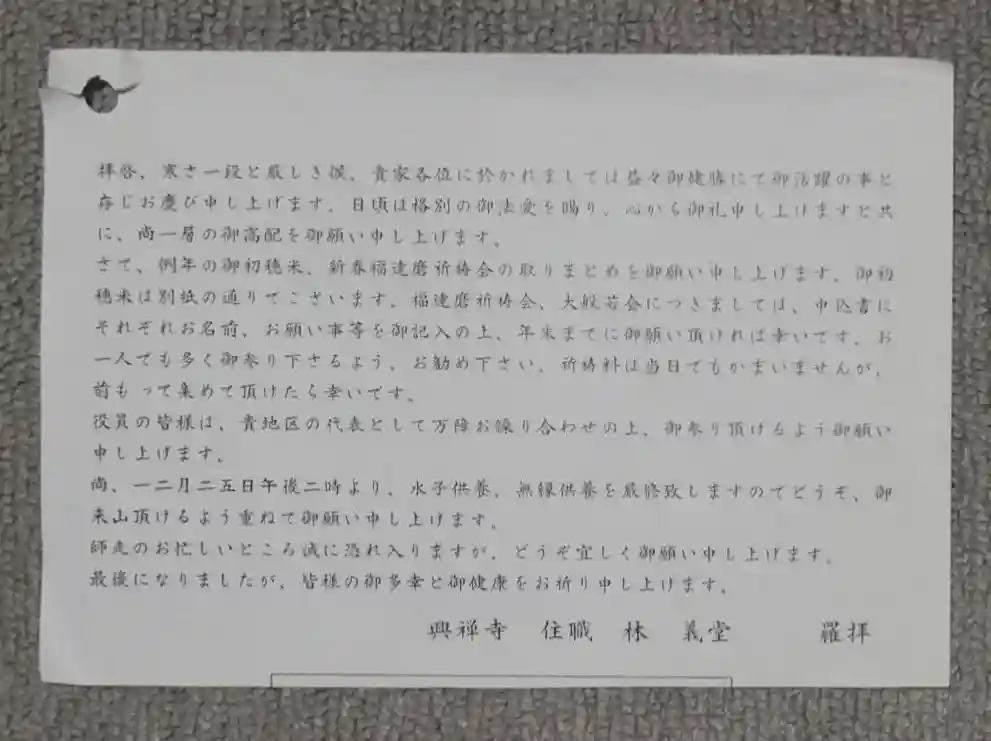 拝啓、寒さ一段と厳しき候、貴家各位に於かれましては益々御健勝にて御活躍の事と
存じお慶び申し上げます。日頃は格別の御法愛を賜り、心から御礼申し上げますと共
に、尚一層の御高配を御願い申し上げます。
さて、例年の御初穂米、新春福達磨祈祷会の取りまとめを御願い申し上げます。御初
穂米は別紙の通りでございます。福達磨祈祷会、大般若会につきましては、申込書に
それぞれお名前、お願い事等を御記入の上、年末までに御願い頂ければ幸いです。お
一人でも多く御参り下さるよう、お勧め下さい。祈祷料は当日でもかまいませんが、
前もって集めて頂けたら幸いです。
役員の皆様は、貴地区の代表として万障お繰り合わせの上、御参り頂けるよう御願い
申し上げます。
尚、一二月二五日午後二時より、水子供養、無縁供養を厳修致しますのでどうぞ、御
来山頂けるよう重ねて御願い申し上げます。
師走のお忙しいところ誠に恐れ入りますが、どうぞ宜しく御願い申し上げます。
最後になりましたが、皆様の御多幸と御健康をお祈り申し上げます。
興禅寺　住職　林　義堂　　　羅拝